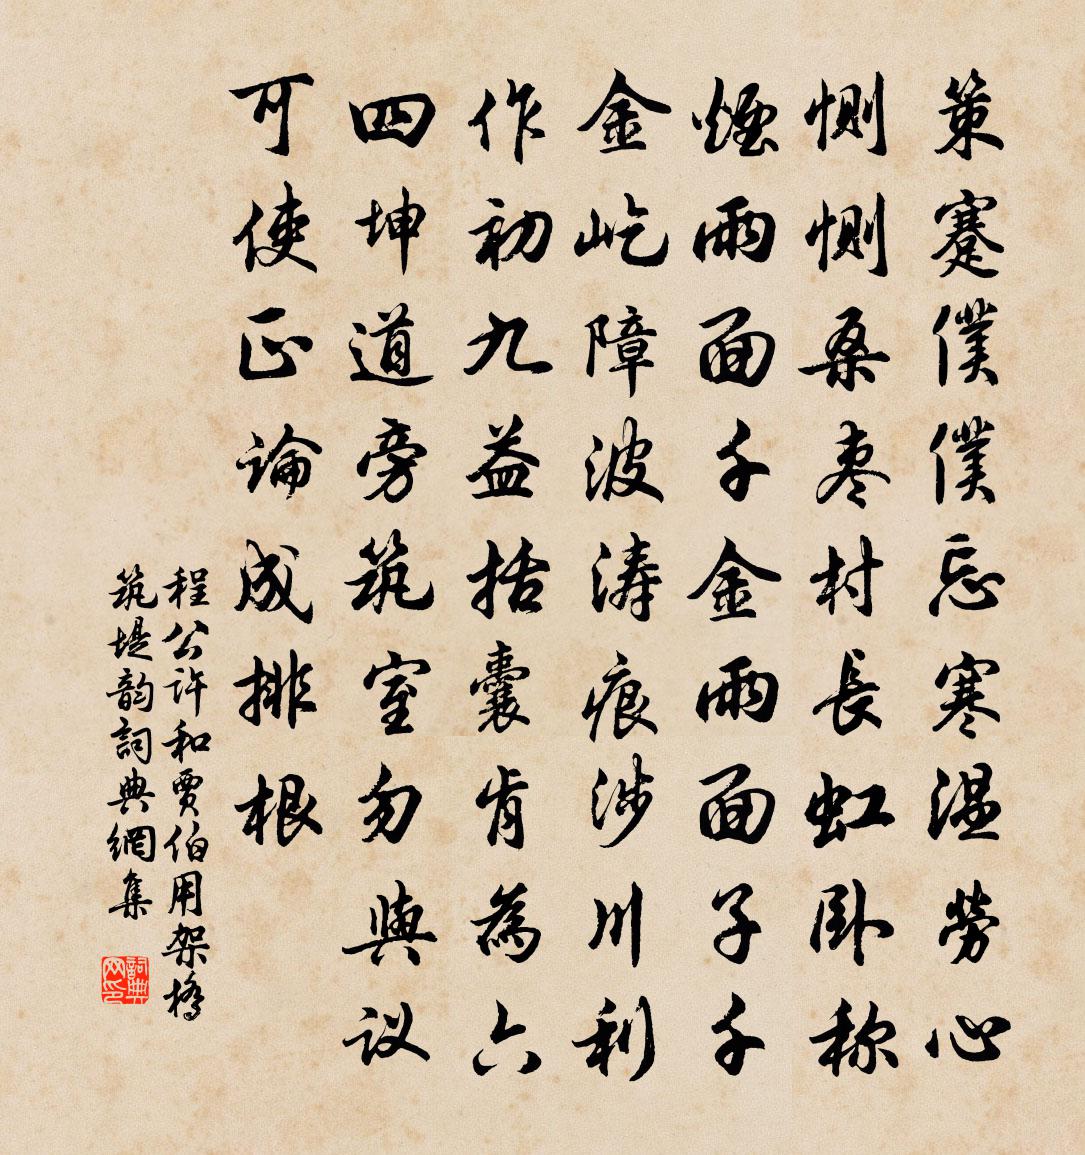 策蹇僕僕忘寒温勞心
惻惻桑棗村長虹卧称
煙雨面千金雨面子千
金屹障波涛痕涉川利
作初九益括囊肯為六
四坤道旁筑室勿與议
可使正論成排根
程公许和賈伯用架橋
筑堤韵詞典網集
詞典
网印